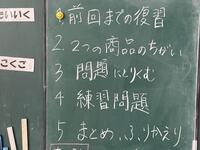 1.前回までの復習
2.2つの商品のちがい
3 問題にとりくむ
4 練習問題
5 まとめ、ふりかえり